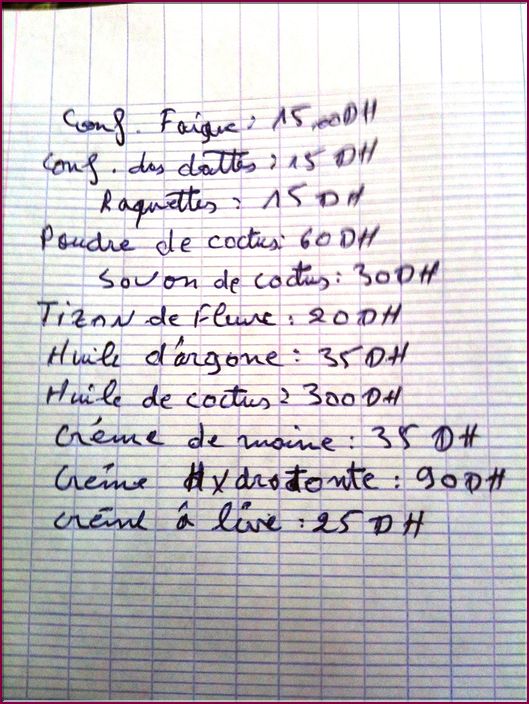 Conf. Faigue : 15,00DH
Conf. das dattes : 15 DH
Raquettes : 15 DH
Poudre de coctus: 60DH
Sovon de coctus : 30DH
Tizan de Fleure : 20DH
Huile d'argone : 35DH
Huile de coctus : 300DH
Crème de maine : 35 DH
Crème Hxdrotante : 90DH
Crème à lève : 25 DH